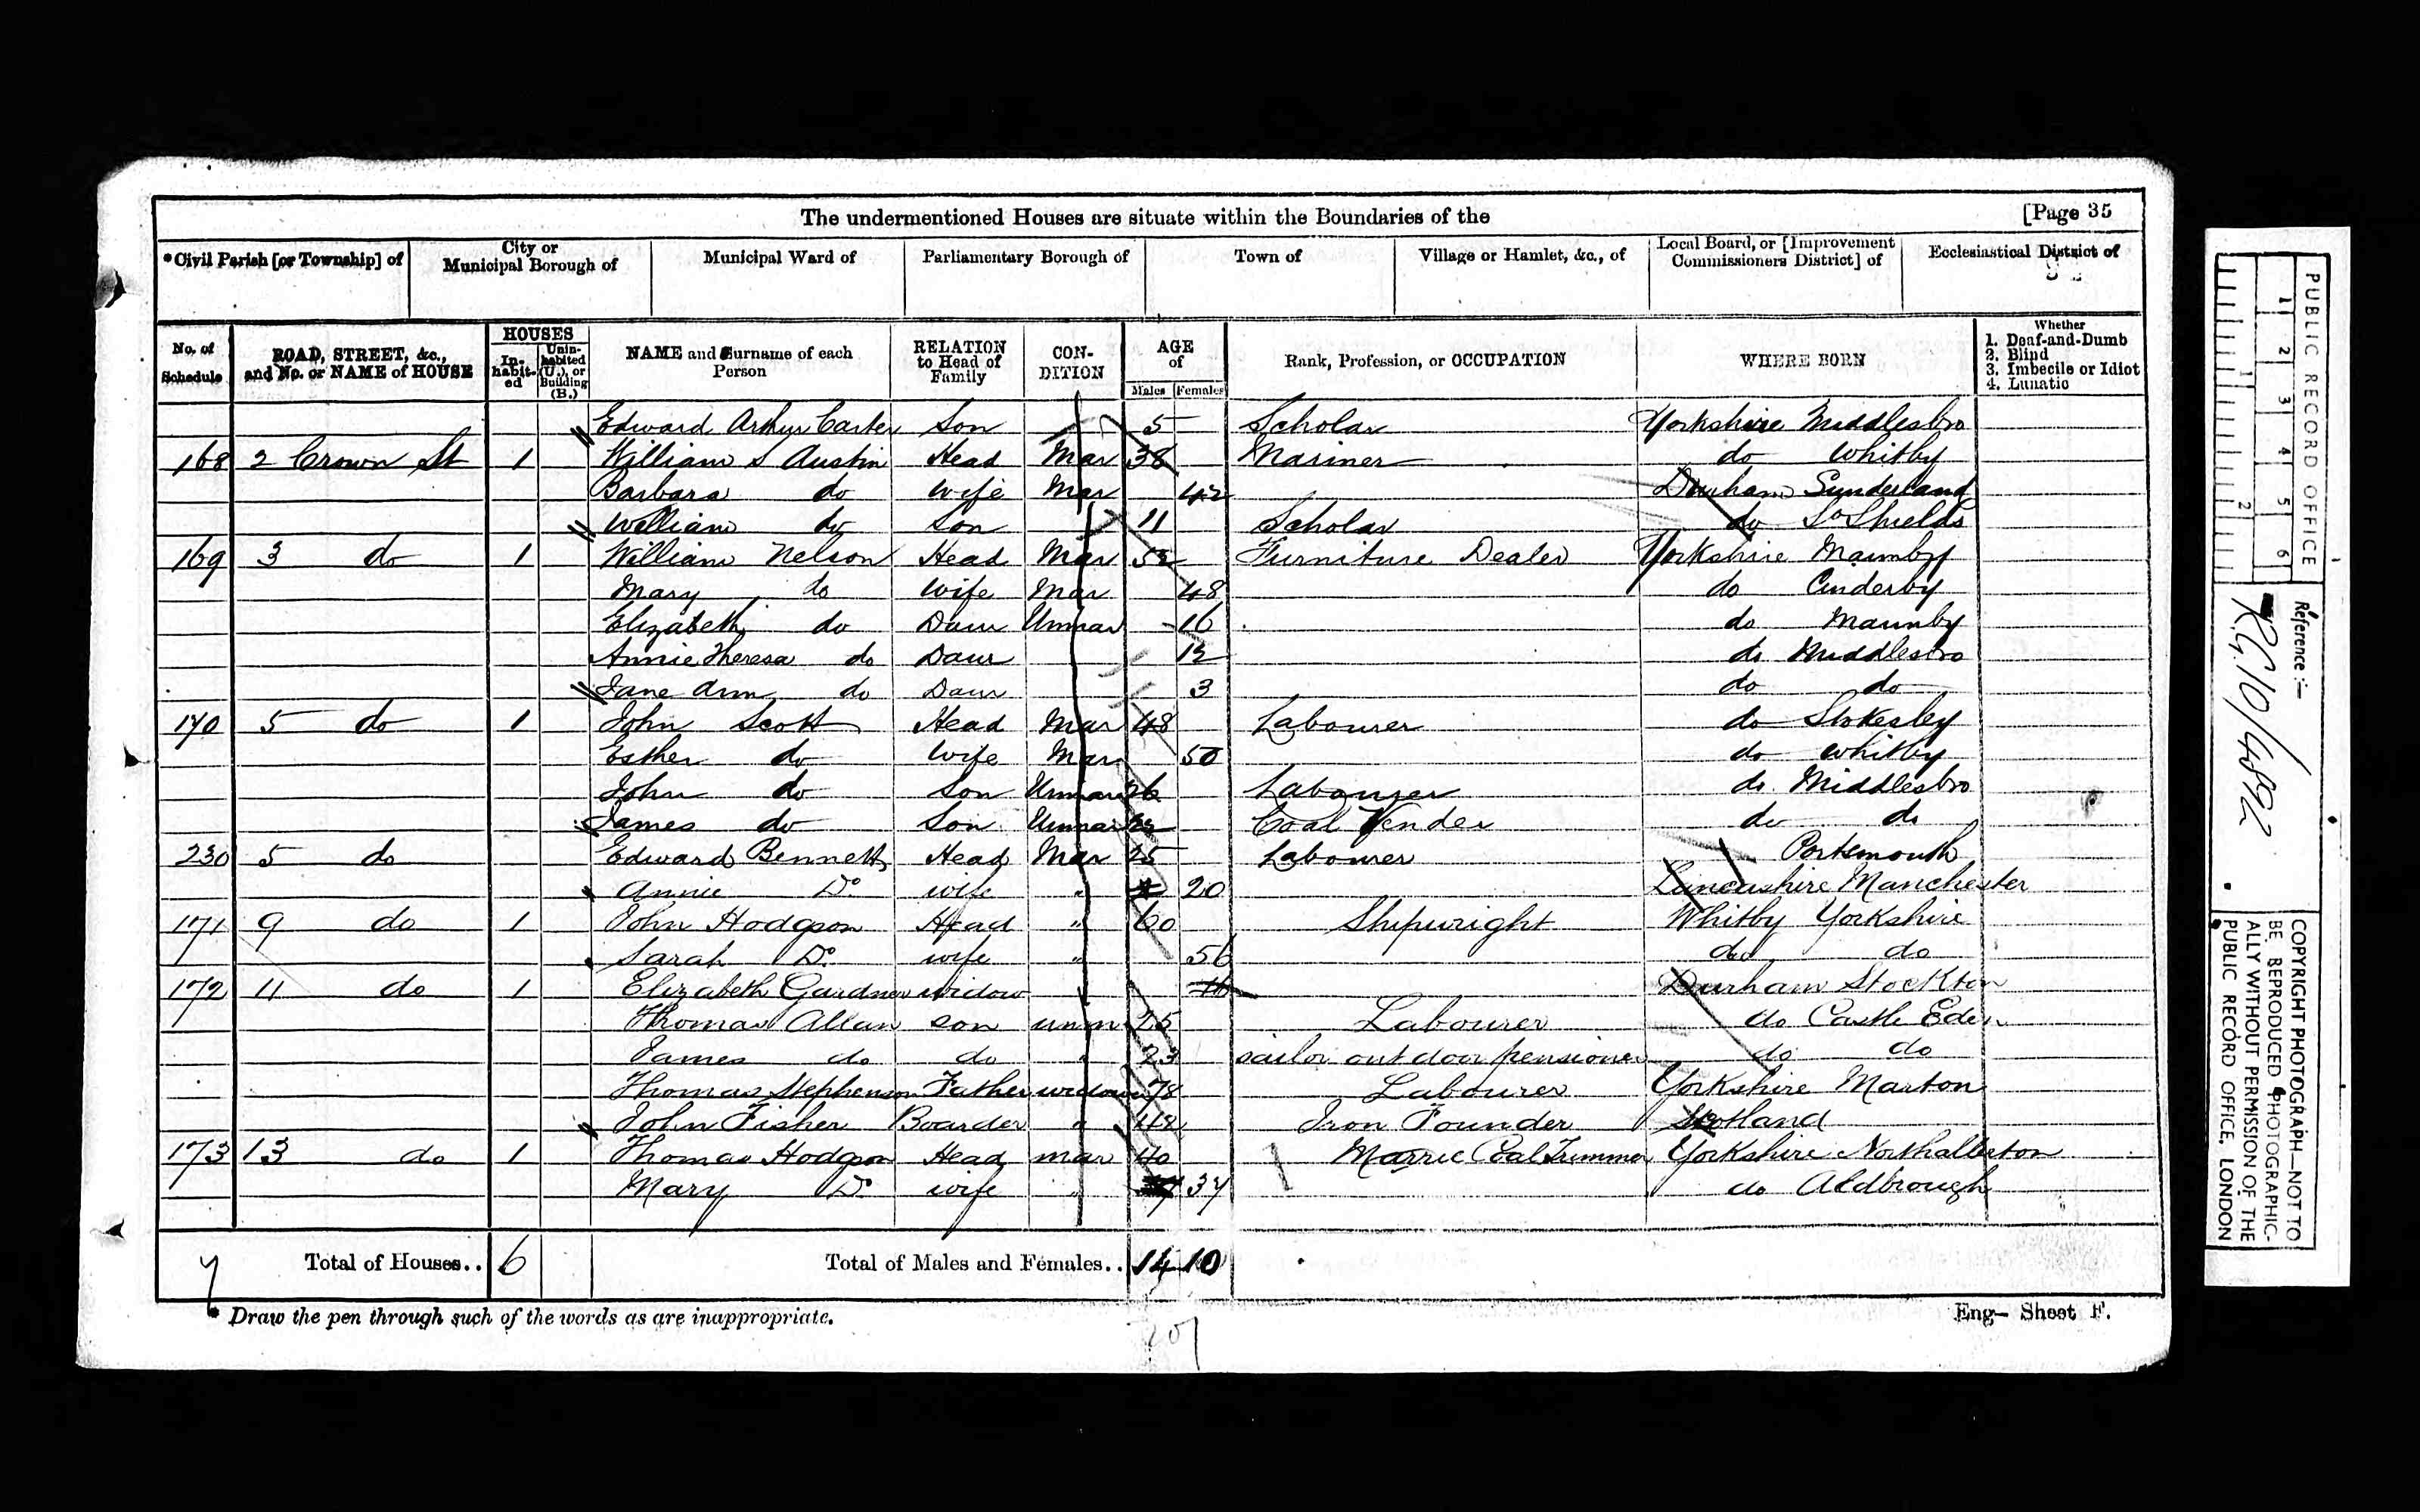 The undermentioned Houses are situate within the Boundaries of the [Page 35
*Civil Parish [or Township] of City or Municipal Borough of Municipal Ward of Parliamentary Borough of Town of Village or Hamlet, &c., of Local Board, or [Improvement Commissioners District] of Ecclesiastical District of
No. of Schedule ROAD, STREET, &c., and No. or NAME of HOUSE HOUSES In-habit-ed Unin-habited (U.), or Building (B.) NAME and Surname of each Person RELATION to Head of Family CON-DITION AGE of Males Females Rank, Profession, or OCCUPATION WHERE BORN Whether 1. Deaf-and-Dumb 2. Blind 3. Imbecile or Idiot 4. Lunatic
Edward Arthur Carter Son 5 Scholar Yorkshire Middlesbro
168 2 Crown St 1 William S Austin Head Mar 38 Mariner do Whitby
Barbara do Wife Mar 42 Durham Sunderland
William do Son 11 Scholar do So Shields
169 3 do 1 William Nelson Head Mar 52 Furniture Dealer Yorkshire Maunby
Mary do Wife Mar 48 do Ainderby
Elizabeth do Daur Unmar 16 do Maunby
Annie Theresa do Daur 12 do Middlesbro
Jane Ann do Daur 3 do do
170 5 do 1 John Scott Head Mar 48 Labourer do Stokesley
Esther do Wife Mar 50 do Whitby
John do Son Unmar 26 Labourer do Middlesbro
James do Son Unmar Coal Vender do do
230 5 do Edward Bennett Head Mar 25 Labourer Portsmouth
Annie Do wife " 20 Lancashire Manchester
171 9 do 1 John Hodgson Head " 60 Shipwright Whitby Yorkshire
Sarah Do wife " 56 do do
172 11 do 1 Elizabeth Gardner widow Durham Stockton
Thomas Allan son unm 25 Labourer do Castle Eden
James do do " 23 sailor outdoor pensioner do do
Thomas Stephenson Father widower 78 Labourer Yorkshire Marton
John Fisher Boarder " 48 Iron Founder Scotland
173 13 do 1 Thomas Hodgson Head mar 40 Coal Trimmer Yorkshire Northallerton
Mary Do wife " 37 do Aldbrough
7 Total of Houses.. 6 Total of Males and Females.. 14 10
* Draw the pen through such of the words as are inappropriate. Eng— Sheet F.
PUBLIC RECORD OFFICE
1 2 3 4 5 6
1 2
Reference :—
R.G. 10/4892
COPYRIGHT PHOTOGRAPH—NOT TO BE REPRODUCED PHOTOGRAPHIC-ALLY WITHOUT PERMISSION OF THE PUBLIC RECORD OFFICE, LONDON